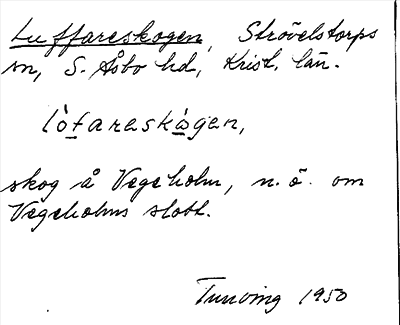 Luffareskogen, Strövelstorps
sn, S. Åsbo hd, Krist. län.
lòfareskògen,
skog å Vegeholm, n. ö. om
Vegeholms slott.
Tunving 1950